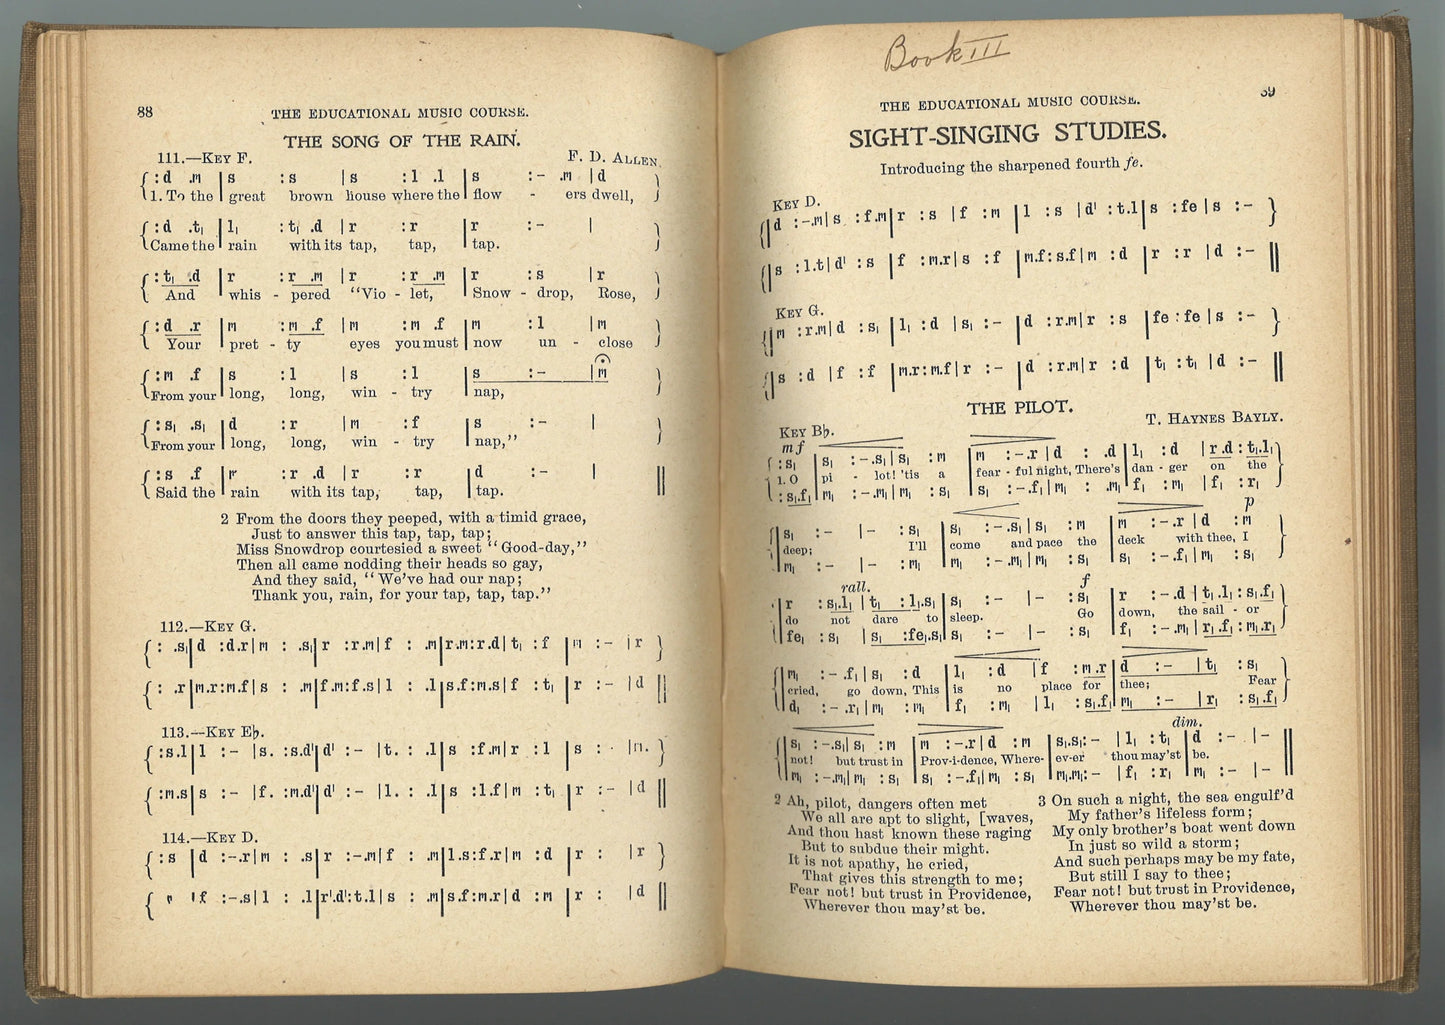 88
THE EDUCATIONAL MUSIC COURSE.
THE SONG OF THE RAIN.
111.—KEY F. F. D. ALLEN.
{ :d .m | s :s | s :l .l | s :- .m | d }
1. To the great brown house where the flow - ers dwell,
{ :d .t₁ | l₁ :t₁ .d | r :r | r :- | }
Came the rain with its tap, tap, tap.
{ :t₁ .d | r :r .m | r :r .m | r :s | r }
And whis - pered "Vio - let, Snow - drop, Rose,
{ :d .r | m :m .f | m :m .f | m :l | m }
Your pret - ty eyes you must now un - close
{ :m .f | s :l | s :l | s :- | m }
From your long, long, win - try nap,
{ :s₁ .s₁ | d :r | m :f | s :- | }
From your long, long, win - try nap,"
{ :s .f | r :r .d | r :r | d :- | ||
Said the rain with its tap, tap, tap.
2 From the doors they peeped, with a timid grace,
Just to answer this tap, tap, tap;
Miss Snowdrop courtesied a sweet "Good-day,"
Then all came nodding their heads so gay,
And they said, "We've had our nap;
Thank you, rain, for your tap, tap, tap."
112.—KEY G.
{ : .s₁ | d :d.r | m : .s₁ | r :r.m | f : .m | r.m:r.d | t₁ :f | m :- | r }
{ : .r | m.r:m.f | s : .m | f.m:f.s | l : .l | s.f:m.s | f :t₁ | r :- | d ||
113.—KEY E♭.
{ :s.l | l :- | s. :s.d' | d' :- | t. : .l | s :f.m | r :l | s : | m. }
{ :m.s | s :- | f. :m.d' | d' :- | l. : .l | s :l.f | m :t₁ | r :- | d ||
114.—KEY D.
{ :s | d :-.r | m : .s | r :-.m | f : .m | l.s:f.r | m :d | r : | r }
{ f :-.s | l : .l | r'.d':t.l | s : .m | s.f:m.r | d :m | r : | d ||
Book III
THE EDUCATIONAL MUSIC COURSE.
SIGHT-SINGING STUDIES.
Introducing the sharpened fourth fe.
KEY D.
{ | d :-.m | s :f.m | r :s | f :m | l :s | d' :t.l | s :fe | s :- }
{ | s :l.t | d' :s | f :m.r | s :f | m.f:s.f | m :d | r :r | d :- ||
KEY G.
{ | m :r.m | d :s₁ | l₁ :d | s₁ :- | d :r.m | r :s | fe :fe | s :- }
{ | s :d | f :f | m.r:m.f | r :- | d :r.m | r :d | t₁ :t₁ | d :- ||
THE PILOT.
KEY B♭. T. HAYNES BAYLY.
mf
{ :s₁ | s₁ :-.s₁ | s₁ :m | m :-.r | d : .d | l₁ :d | r.d:t₁.l₁ }
1. O pi - lot! 'tis a fear - ful night, There's dan - ger on the
:s₁.f₁ | m₁ :-.m₁ | m₁ :s₁ | s₁ :-.f₁ | m₁ : .m₁ | f₁ :m₁ | f₁ :r₁
p
{ | s₁ :- | - :s₁ | s₁ :-.s₁ | s₁ :m | m :-.r | d :m }
deep; I'll come and pace the deck with thee, I
| m₁ :- | - :m₁ | m₁ :-.m₁ | m₁ :s₁ | s₁ :-.f₁ | m₁ :s₁
rall. f
| r :s₁.l₁ | t₁ :l₁.s₁ | s₁ :- | - :s₁ | r :-.d | t₁.l₁ :s₁.f₁ }
do not dare to sleep. Go down, the sail - or
| fe₁ :s₁ | s₁ :fe₁.s₁ | s₁ :- | - :s₁ | f₁ :-.m₁ | r₁.f₁ :m₁.r₁
{ | m₁ :-.f₁ | s₁ :d | l₁ :d | f :m.r | d :- | t₁ :s₁ }
cried, go down, This is no place for thee; Fear
| d₁ :-.r₁ | m₁ :m₁ | f₁ :m₁ | l₁ :s₁.f₁ | m₁ :- | r₁ :s₁.f₁
dim.
{ | s₁ :-.s₁ | s₁ :m | m :-.r | d :m | s₁.s₁:- | l₁ :t₁ | d :- | - ||
not! but trust in Prov-i-dence, Where- ev-er thou may'st be.
| m₁ :-.m₁ | m₁ :s₁ | s₁ :-.f₁ | m₁ :s₁ | m₁.m₁:- | f₁ :r₁ | m₁ :- | -
2 Ah, pilot, dangers often met
We all are apt to slight, [waves,
And thou hast known these raging
But to subdue their might.
It is not apathy, he cried,
That gives this strength to me;
Fear not! but trust in Providence,
Wherever thou may'st be.
3 On such a night, the sea engulf'd
My father's lifeless form;
My only brother's boat went down
In just so wild a storm;
And such perhaps may be my fate,
But still I say to thee;
Fear not! but trust in Providence,
Wherever thou may'st be.